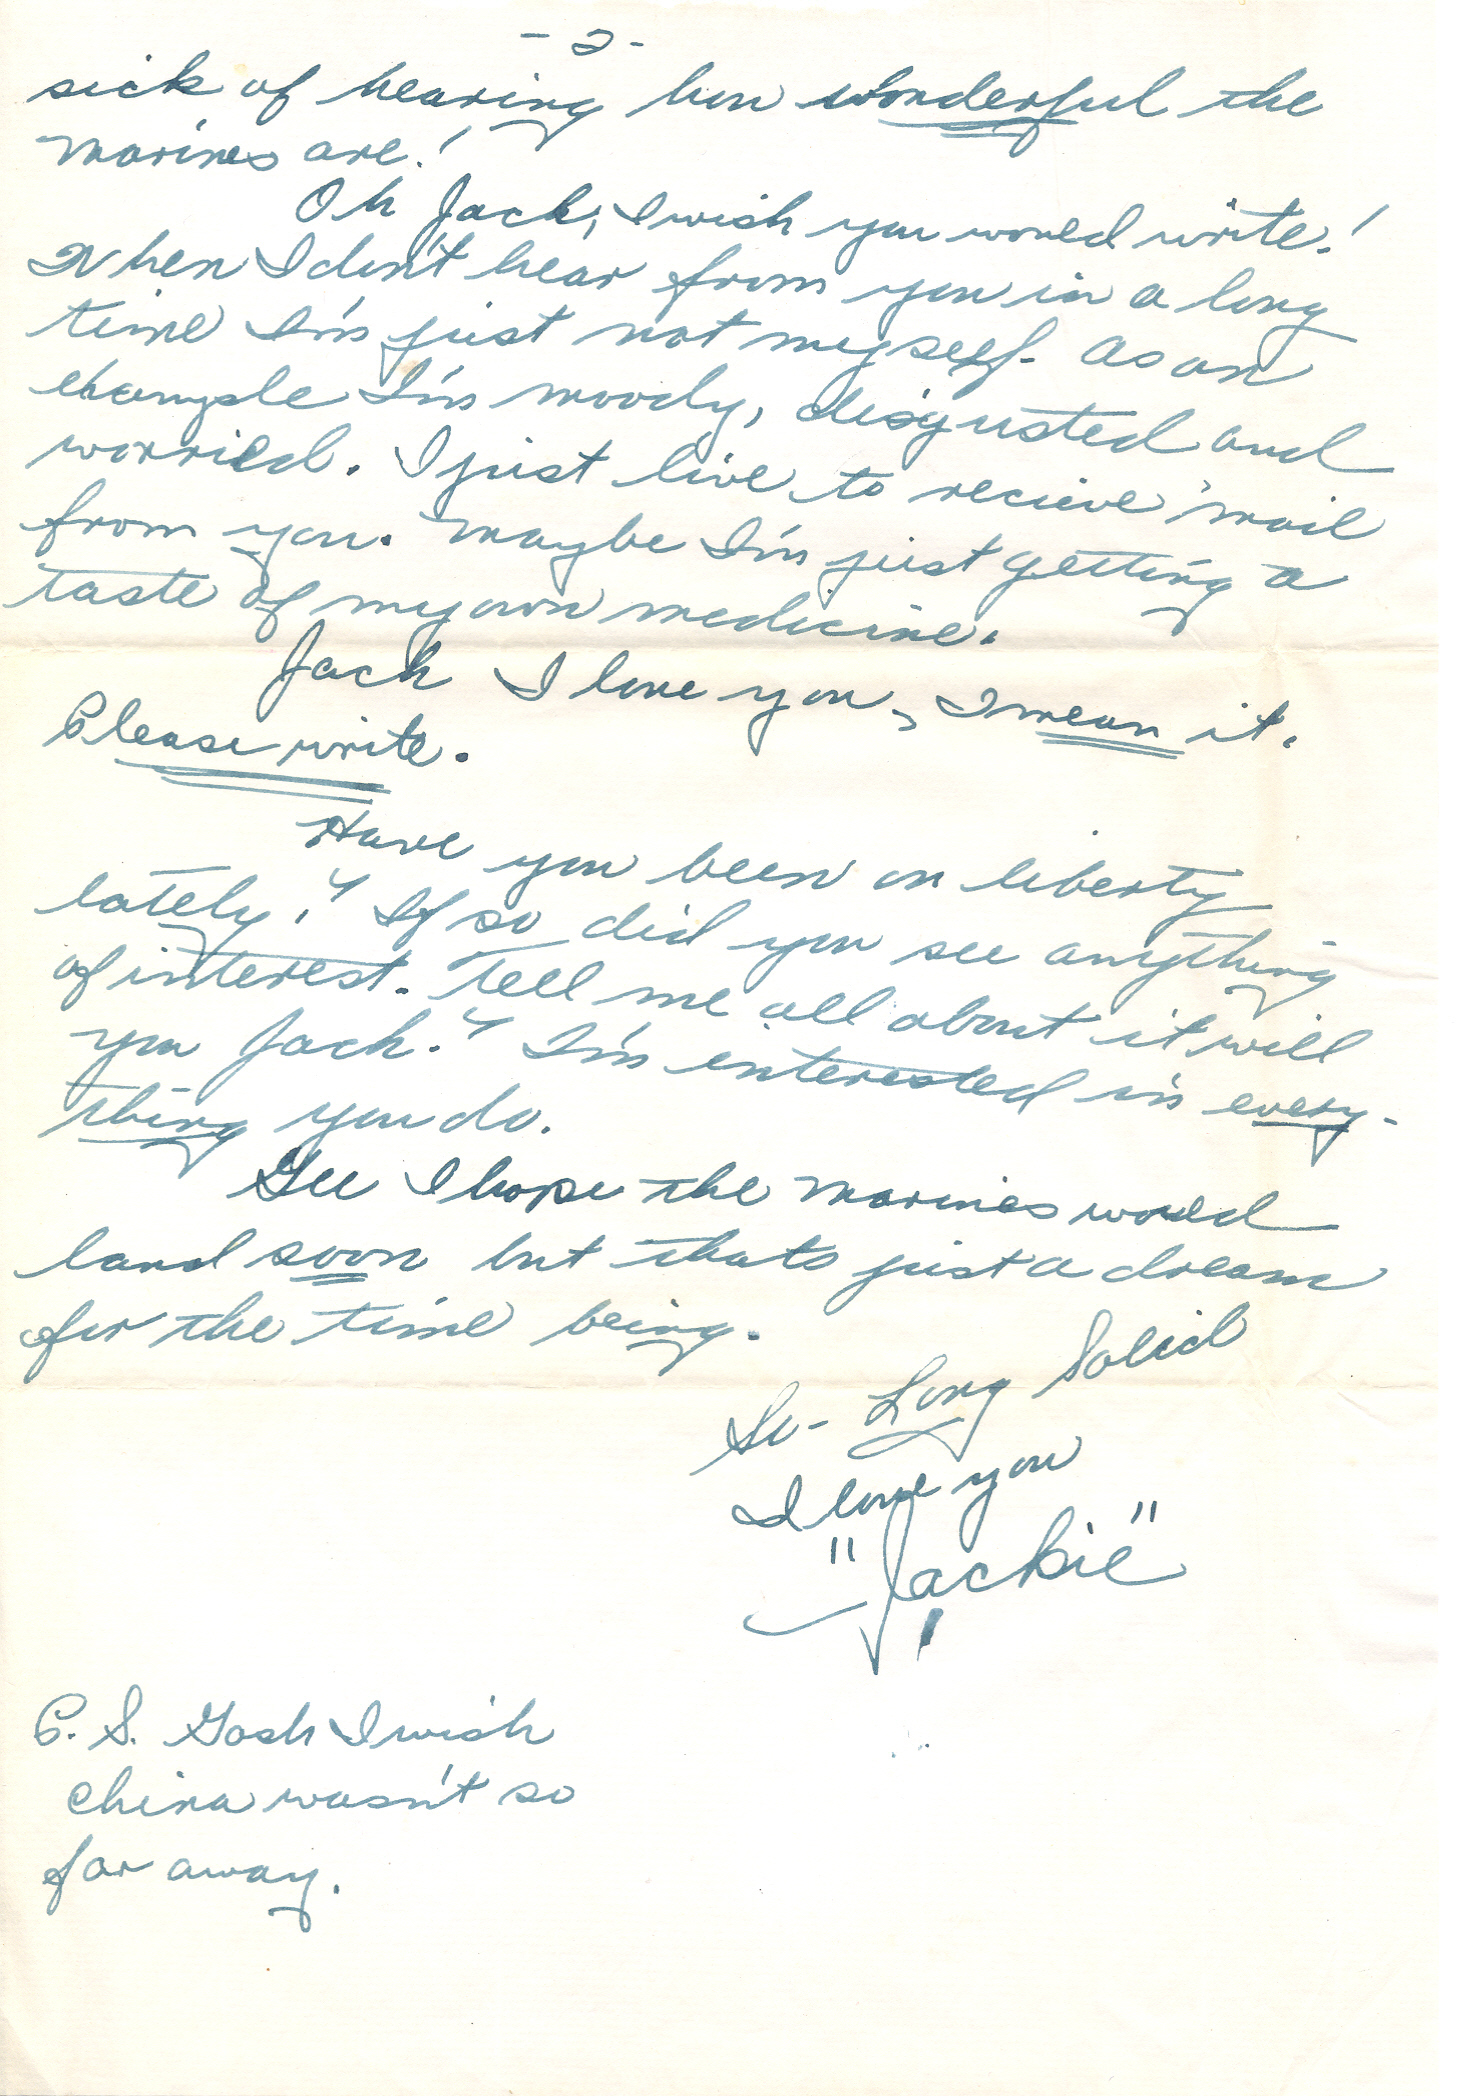 - 2 -
sick of hearing how wonderful the
marines are!
Oh Jack, I wish you would write!
When I don't hear from you in a long
time I'm just not myself. As an
example I'm moody, disgusted and
worried. I just live to recieve mail
from you. Maybe I'm just getting a
taste of my own medicine.
Jack I love you, I mean it.
Please write.
Have you been on liberty
lately? If so did you see anything
of interest. Tell me all about it will
you Jack? I'm interested in every-
thing you do.
Gee I hope the marines would
land soon but thats just a dream
for the time being.
So- Long Solid
I love you
"Jackie"
P. S. Gosh I wish
China wasn't so
far away.